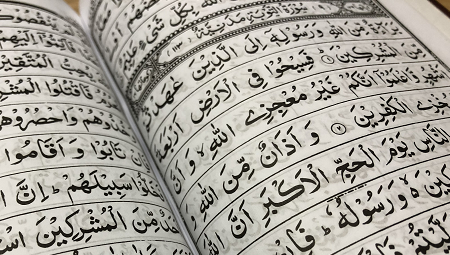 اللّٰهَ بِكُلِّ شَيْءٍ
سُوْرَةُ التَّوْبَةِ مَدَنِيَّةٌ (١١٣)
مِّنَ اللّٰهِ وَرَسُوْلِهٖٓ اِلَى الَّذِيْنَ عٰهَدْ
الْمُشْرِكِيْنَ ① فَسِيْحُوْا فِى الْاَرْضِ اَرْبَعَةَ
وَّ اعْلَمُوْٓا اَنَّكُمْ غَيْرُ مُعْجِزِى اللّٰهِ ۙ وَ اَنَّ
مُخْزِى الْكٰفِرِيْنَ ② وَ اَذَانٌ مِّنَ اللّٰهِ
النَّاسِ يَوْمَ الْحَجِّ الْاَكْبَرِ اَنَّ اللّٰهَ
كِيْنَ ۙ وَرَسُوْلُهٗ ؕ فَاِنْ
لَّيْتُمْ
يَنْقُصُوْكُمْ
فَاَتِمُّوْٓا اِلَيْهِمْ
الْمُتَّقِيْنَ
فَاقْتُلُوا الْمُشْرِ
وَاحْصُرُوْهُمْ
تَابُوْا وَ اَقَامُوا
سَبِيْلَهُمْ ؕ اِنَّ
مِّنَ الْمُشْرِكِيْنَ اسْ